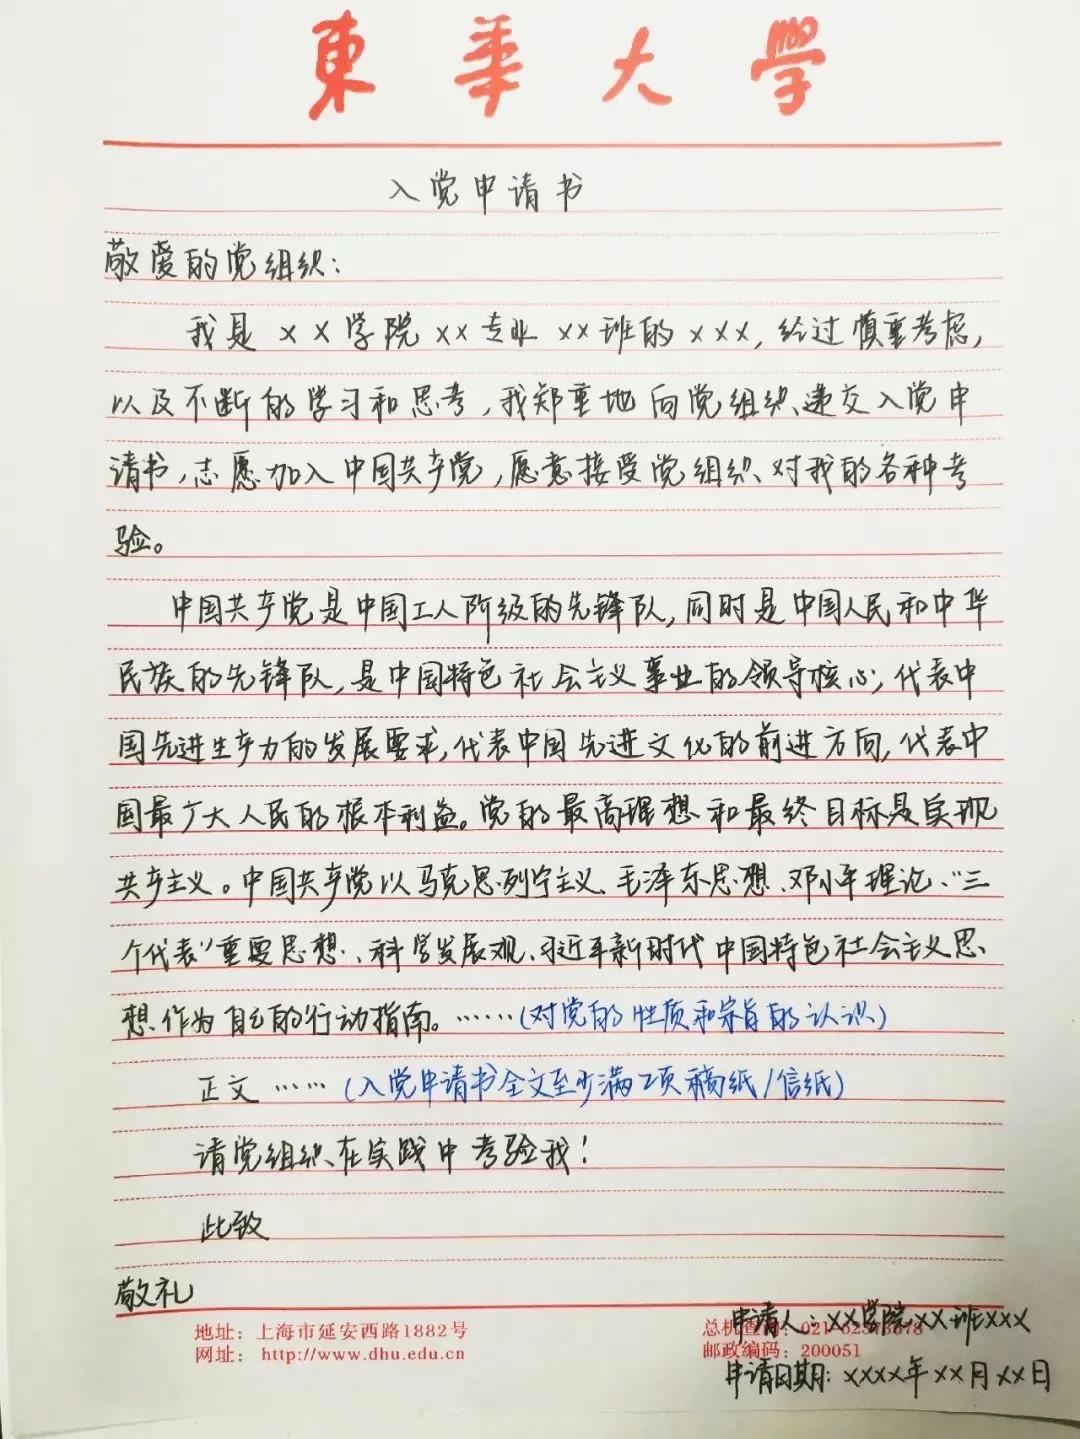 東華大學
入党申请书
敬爱的党组织：
我是××学院××专业××班的×××，经过慎重考虑，
以及不断的学习和思考，我郑重地向党组织递交入党申
请书，志愿加入中国共产党，愿意接受党组织对我的各种考
验。
中国共产党是中国工人阶级的先锋队，同时是中国人民和中华
民族的先锋队，是中国特色社会主义事业的领导核心，代表中
国先进生产力的发展要求，代表中国先进文化的前进方向，代表中
国最广大人民的根本利益。党的最高理想和最终目标是实现
共产主义。中国共产党以马克思列宁主义、毛泽东思想、邓小平理论、“三
个代表”重要思想、科学发展观、习近平新时代中国特色社会主义思
想作为自己的行动指南。……（对党的性质和宗旨的认识）
正文……（入党申请书全文至少满2页稿纸/信纸）
请党组织在实践中考验我！
此致
敬礼
申请人：××学院××班×××
地址：上海市延安西路1882号
总机查询：021-62373678
网址：http://www.dhu.edu.cn
邮政编码：200051
申请日期：××××年××月××日